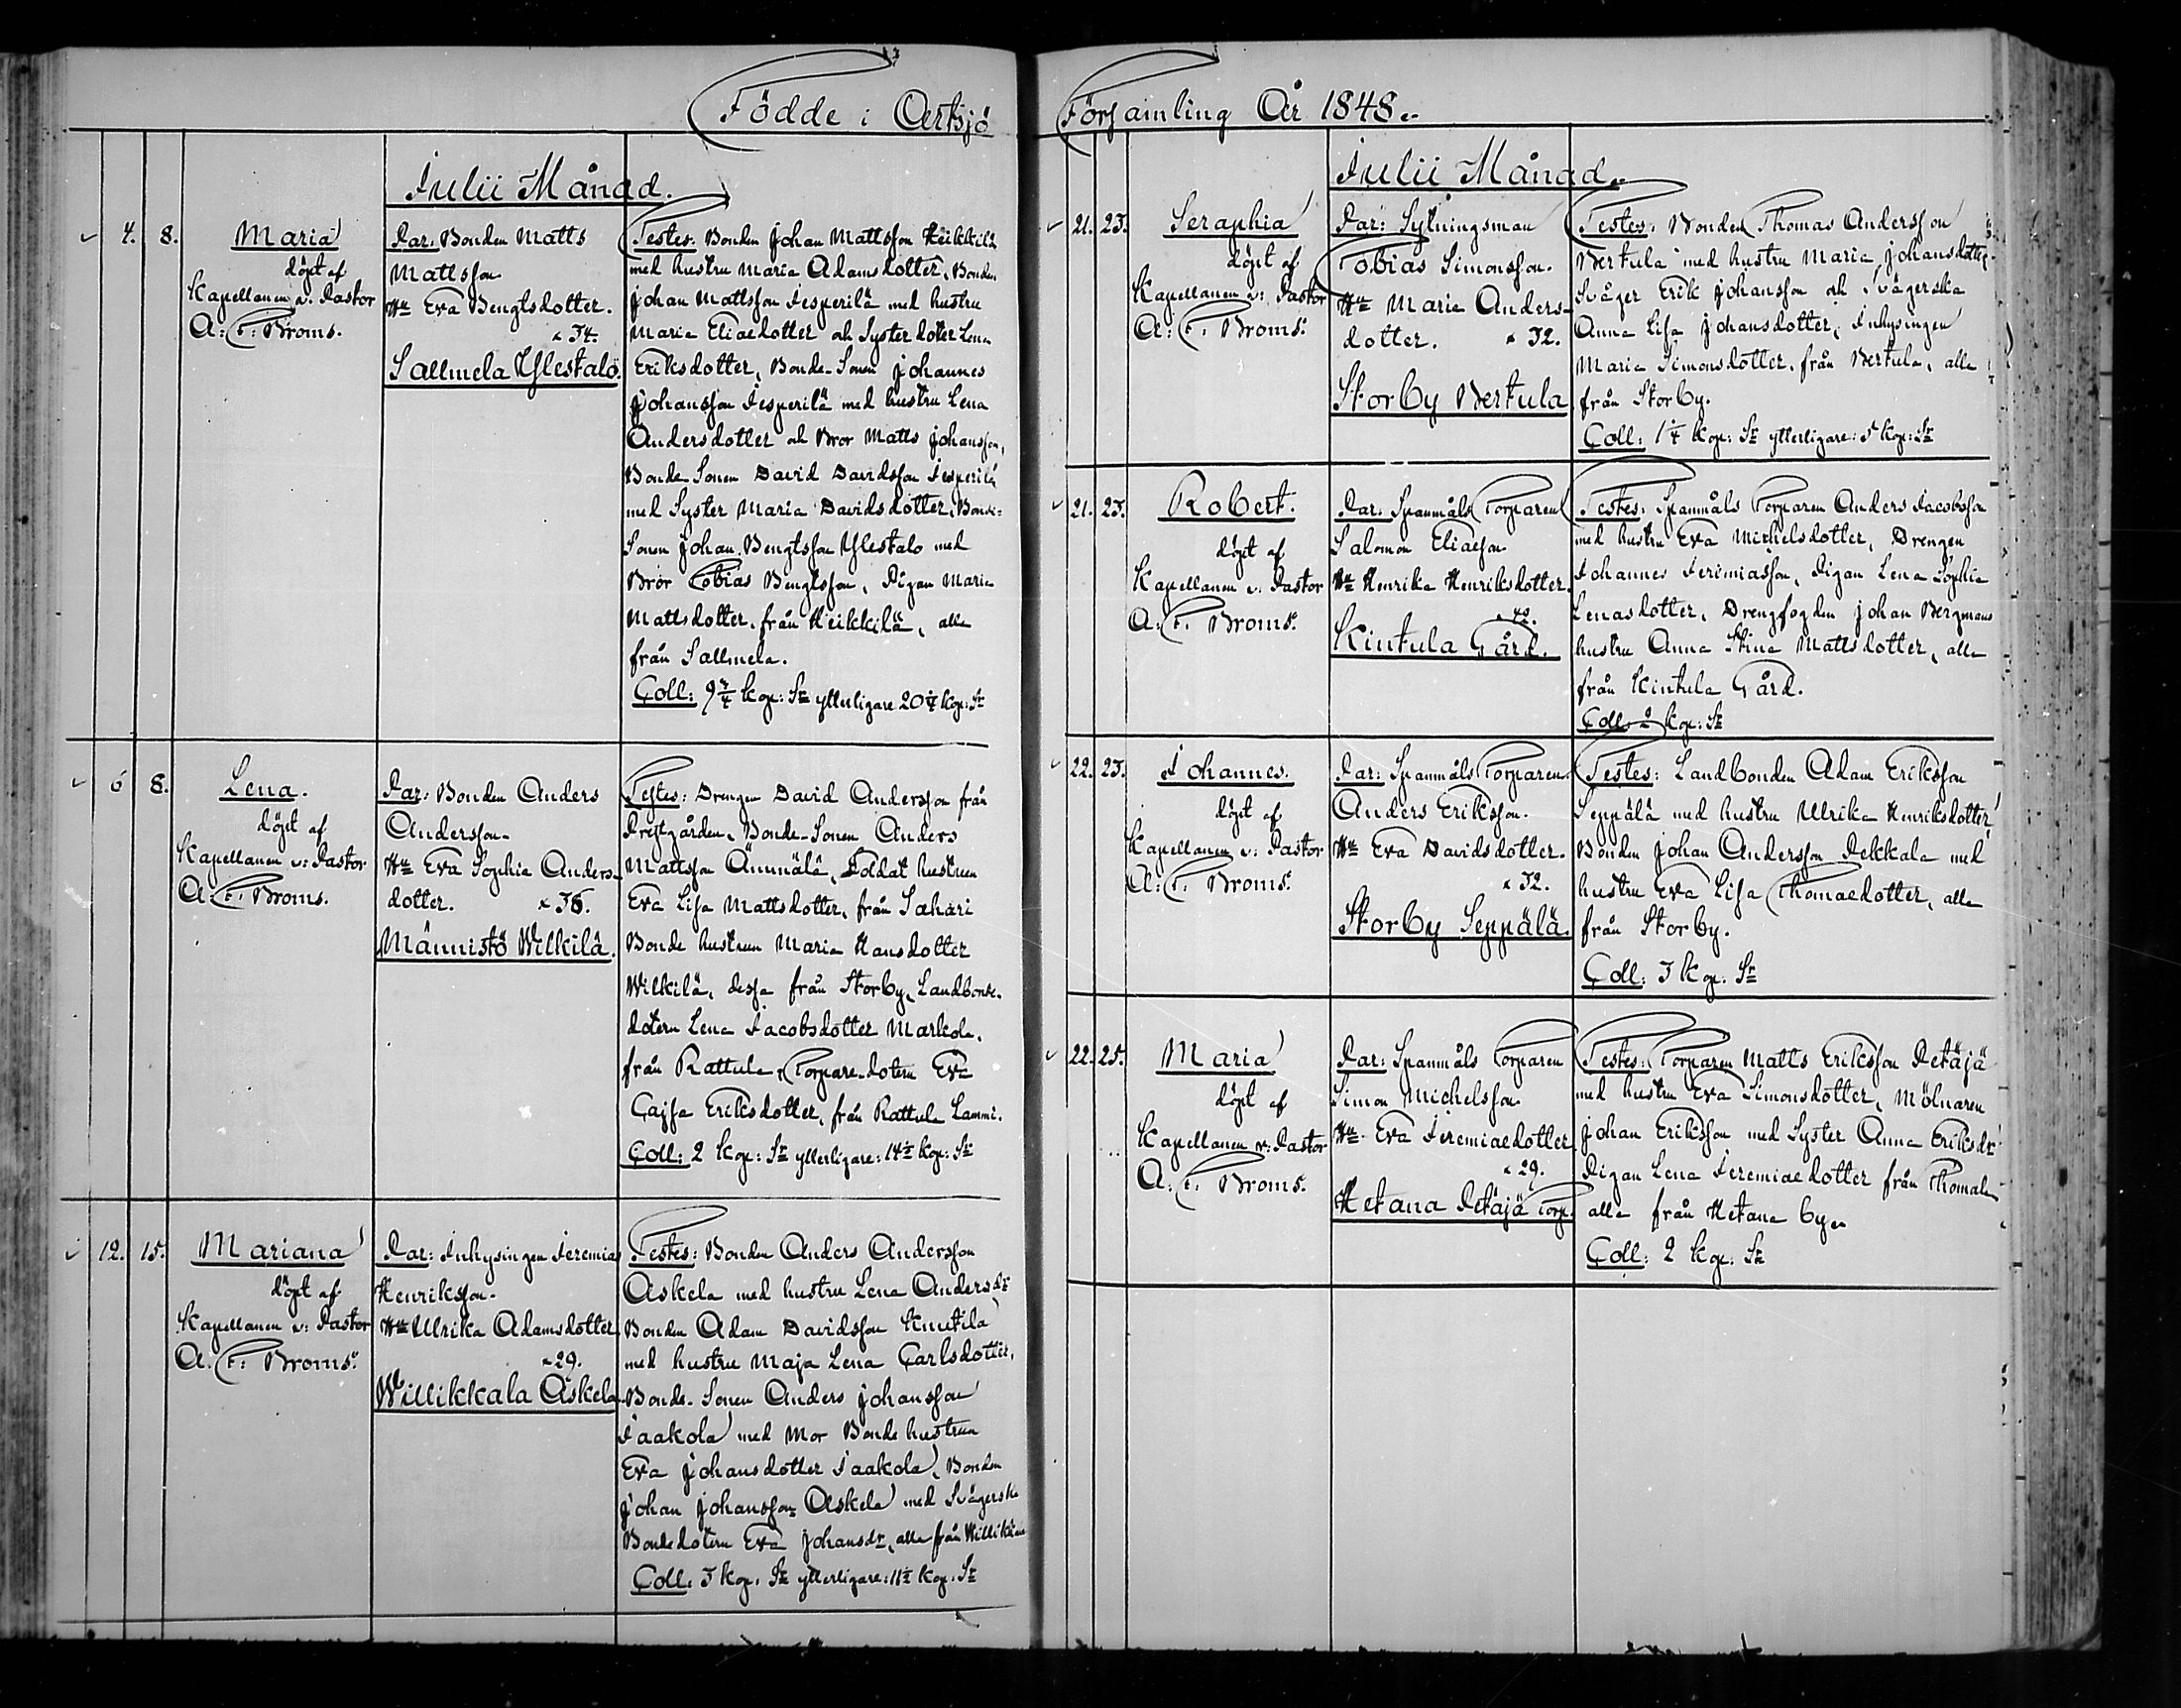 Födde i Artsjö
Julii Månad.
4. 8. Maria
döpt af
Kapellanen v: Pastor
A: F: Broms.
Par: Bonden Matts
Mattsson
Hu Eva Bengtsdotter.
34.
Sallmela Ylestalo.
Testes: Bonden Johan Mattsson Heikkilä
med hustru Maria Adamsdotter, Bonden
Johan Mattsson Jesperilä med hustru
Maria Eliaedotter och Syster doter Lena
Eriksdotter, Bonde-Sonen Johannes
Johansson Jesperilä med hustru Lena
Andersdotter och Bror Matts Johansson,
Bonde Sonen David Davidsson Jesperilä
med Syster Maria Davidsdotter, Bonde-
Sonen Johan Bengtsson Ylestalo med
Bror Tobias Bengtsson, Pigan Maria
Mattsdotter, från Heikkilä, alla
från Sallmela.
Coll: 9 3/4 kop: Sr ytterligare 20 1/4 kop: Sr
6 8. Lena.
döpt af
Kapellanen v: Pastor
A: F: Broms.
Par: Bonden Anders
Andersson
Hu Eva Sophia Anders-
dotter. 36.
Männistö Wilkilä.
Testes: Drengen David Andersson från
Prestgården, Bonde-Sonen Anders
Mattsson Ämmälä, Soldat hustrun
Eva Lisa Mattsdotter, från Sahari
Bonde hustrun Maria Hansdotter
Wilkilä, dessa från Storby, Landbonde-
dotern Lena Jacobsdotter Markola,
från Rattula, Torpare-dotern Eva
Cajsa Eriksdotter, från Rattula Lammi.
Coll: 2 kop: Sr ytterligare: 14 1/2 kop: Sr
12. 15. Mariana
döpt af
Kapellanen v: Pastor
A. F: Broms.
Par: Inhysingen Jeremias
Henriksson
Hu Ulrika Adamsdotter
29.
Willikkala Askela
Testes: Bonden Anders Andersson
Askela med hustru Lena Andersdr
Bonden Adam Davidsson Knutila
med hustru Maja Lena Carlsdotter,
Bonde-Sonen Anders Johansson
Jaakola med Mor Bonde hustrun
Eva Johansdotter Jaakola, Bonden
Johan Johansson Askela med Svägerska
Bondedotern Eva Johansdr, alla från Willikkala
Coll. 3 kop. Sr ytterligare: 11 1/2 kop. Sr
Församling År 1848.
Julii Månad.
21. 23. Seraphia
döpt af
Kapellanen v: Pastor
A: F: Broms.
Par: Sytningsman
Tobias Simonsson.
Hu Maria Anders-
dotter. 32.
Storby Bertula
Testes: Bonden Thomas Andersson
Bertula med hustru Maria Johansdotter
Svåger Erik Johansson och Svägerska
Anna Lisa Johansdotter, Inhysingen
Maria Simonsdotter, från Bertula, alla
från Storby.
Coll: 1 1/4 kop: Sr ytterligare: 5 kop: Sr
21. 23. Robert.
döpt af
Kapellanen v: Pastor
A: F: Broms.
Par: Spannmåls Torparen
Salomon Eliaeson
Hu Henrika Henriksdotter.
42.
Kintula Gård.
Testes: Spannmåls Torparen Anders Jacobsson
med hustru Eva Michelsdotter, Drengen
Johannes Jeremiasson, Pigan Lena Sophia
Lenasdotter, Drengfogden Johan Bergmans
hustru Anna Stina Mattsdotter, alla
från Kintula Gård.
Coll: kop: Sr
22. 23. Johannes.
döpt af
Kapellanen v: Pastor
A: F: Broms.
Par: Spannmåls Torparen
Anders Eriksson.
Hu Eva Davidsdotter.
32.
Storby Seppälä.
Testes: Landbonden Adam Eriksson
Seppälä med hustru Ulrika Henriksdotter
Bonden Johan Andersson Pekkala med
hustru Eva Lisa Thomaedotter, alla
från Storby.
Coll: 3 kop. Sr
22. 25. Maria
döpt af
Kapellanen v: Pastor
A: F: Broms.
Par: Spanmåls Torparen
Simon Michelsson
Hu Eva Jeremiaedotter
29.
Hetana Petäjä Torp.
Testes: Torparen Matts Eriksson Petäjä
med hustru Eva Simonsdotter, Mölnaren
Johan Eriksson med Syster Anna Eriksdr
Pigan Lena Jeremiaedotter från Thomala
alla från Hetana by.
Coll: 2 kop: Sr